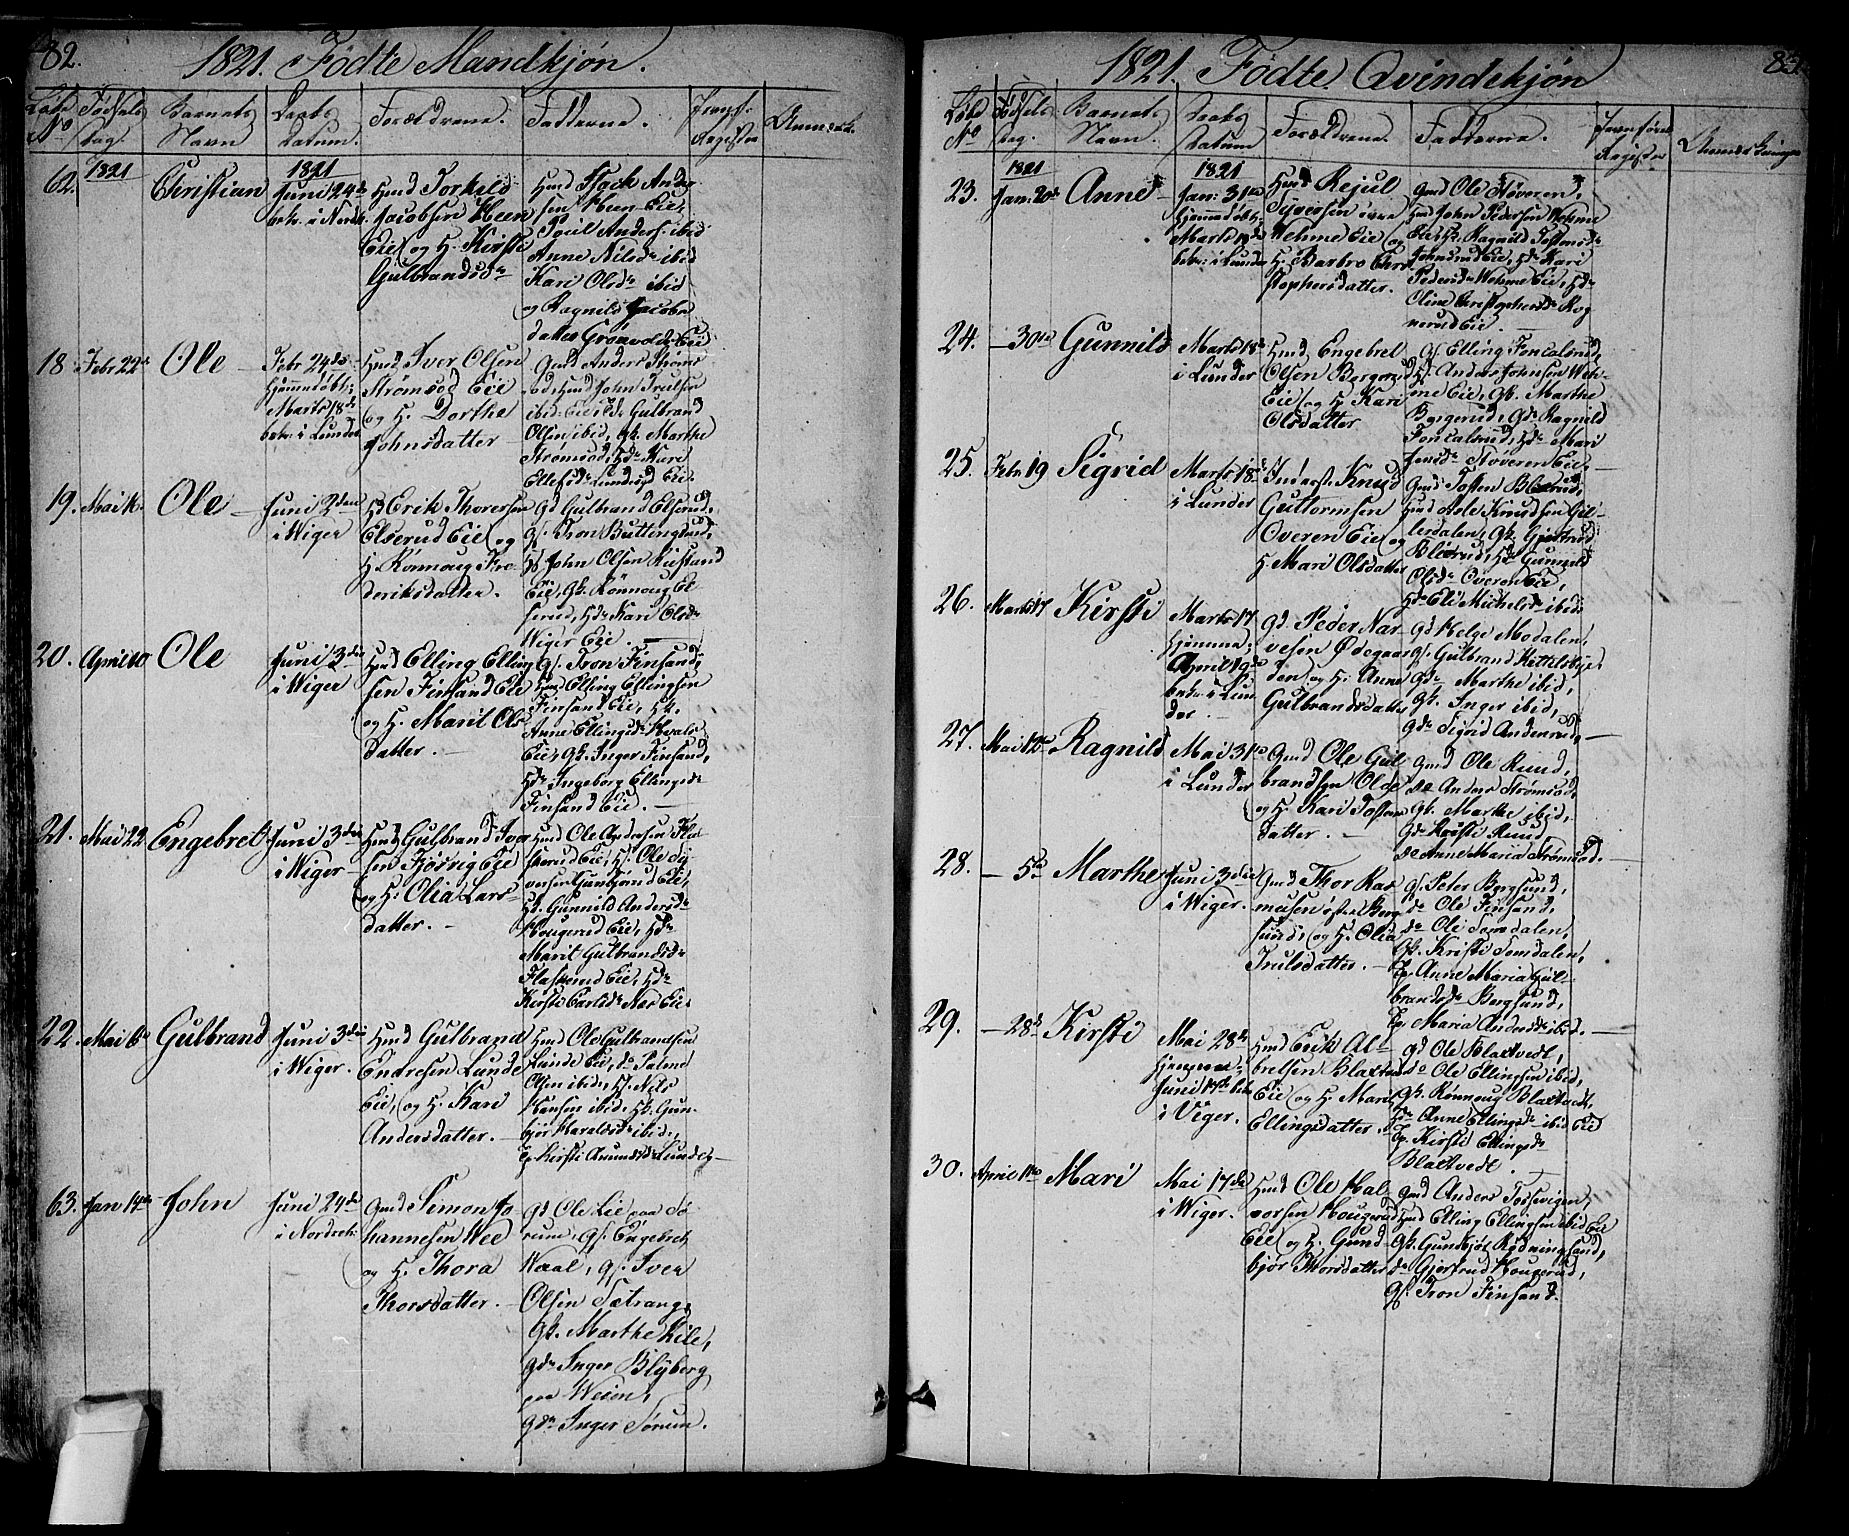 82.
1821. Födte Mandkjön.
Löbe No
Födsels Dag.
Barnets Navn
Daabs Datum.
Forældrene.
Fadderne.
Jevnf: Register
Anmærk.
62.
1821
Christian
1821
Juni 24de
bekr. i Nordr.
Hmd Torkild
Jacobsen Heen
Eie, og H. Kirsti
Gulbrandsdr
Hmd Stock Ander
sen Heen Eie,
Poul Anders. ibid
Anne Nilsdr ibid
Kari Olsdr ibid
og Ragnild Jacobs
datter Grönvold Eie
18.
Febr 22de
Ole
Febr 24de
hjemmedöbt;
Marts 18de
bekr: i Lunder
Hmd Iver Olsen
Strömsod Eie
og H. Dorthe
Johnsdatter
Gmd Anders Ström
sod, Hmd John Trulsen
ibid Eie, Gulbrand
Olsen ibid, Gk. Marthe
Strömsod, Hdr Kari
Ellefsdr Lundesgd Eie.
19.
Mai 14.
Ole
Juni 2den
i Wiger
H Erik Thoresen
Elserud Eie og
H. Rönnoug Fre
deriksdatter.
Gd Gulbrand Elserud,
Gs. Tron Buttenglund,
Hs John Olsen Rustand
Eie, Gk. Rönnoug El
serud, Hdr Kari Olsdr
Wiger Eie.
20.
April 10
Ole
Juni 3die
i Wiger
Hmd Elling Elling
sen Finsand Eie
og H. Marit Ols
datter.
Gs. Tron Finsand,
Hmd Elling Ellingsen
Finsand Eie, Hk.
Anne Ellingsdr Hvals
Eie, Gk. Inger Finsand,
Hdr Ingeborg Ellingsdr
Finsand Eie.
21.
Mai 22
Engebret
Juni 3die
i Wiger
Hmd Gulbrand Iver
sen Fjösvig Eie
og H. Olia Lars
datter.
Hmd Ole Andersen Fla
skerud Eie, Hs. Ole Sy
versen Gunbjörud Eie,
Hk. Gunnild Andersdr
Hougerud Eie, Hdr
Marit Gulbrandsdr
Flaskerud Eie, Hdr
Kirsti Carlsdr Næs Eie
22.
Mai 6te
Gulbrand
Juni 3die
i Wiger.
Hmd Gulbrand
Endresen Lunde
Eie, og H. Kari
Andersdatter.
Hmd Ole Gulbrandsen
Lunde Eie, do Palme
Olsen ibid, Hs. Nils
Hansen ibid. Hk. Gun
björ Haraldsdr ibid,
Ep. Kirsti Amundsdr Lunde
63.
Jan 14de
John
Juni 24de
i Nordreh:
Gmd Simon Jo
hannesen Wee
og H. Thora
Thorsdatter.
Gd Ole Lie paa Sö
rum, Gs. Engebret
Waal, Gs. Iver
Olsen Sætrang,
Gk. Marthe Lile,
Gdr Inger Blyberg
paa Weien,
Gdr Inger Sörum.
83.
1821. Födte Qvindekjön
Löbe No
Födsels Dag.
Barnets Navn.
Daabs Datum
Forældrene.
Fadderne.
Jevnföres Register
Anmærkninger
23.
1821
Jan: 20de
Anne
1821
Jan: 31te
hjemmedöbt;
Marts 19de
bekr: i Lunder
Hmd Rejul
Syversen övre
Wehme Eie og
H. Barbro Chri
stophersdatter.
Gmd Ole Stöveren,
Hmd John Pedersen Wehme
Eie, Hk. Ragnild Tostensdr
Johnsrud Eie, Hdr Kari
Pedersdr Wehme Eie, Hdr
Oline Christophersdr Rog
nerud Eie.
24.
— 30te
Gunnild
Marts 18de
i Lunder
Hmd Engebret
Olsen Borgerud
Eie og H. Kari
Olsdatter
Gs. Elling Foncalsrud,
Hs. Anders Johnsen Weh-
me Eie, Gk. Marthe
Borgerud, Gdr Ragnild
Foncalsrud, Hdr Mari
Jensdr Stöveren Eie,
25.
Febr 19
Sigrid
Marts 18de
i Lunder
Inderst. Knud
Guttormsen
Overen Eie og
H. Mari Olsdatter
Gmd Tosten Blörud,
Hmd Arle Knudsen Gil-
lerdalen, Gk. Gjertrud
Blörud, Hdr Gunnild
Olsdr Overen Eie,
Hdr Eli Michelsdr ibid
26.
Marts 17
Kirsti
Marts 17
hjemmed;
April 19de
bekr. i Lun
der.
Gd. Peder Nar
vesen Ödegaar
den og H. Anne
Gulbrandsdatter
Gd Helge Modalen,
Gs. Gulbrand Kittelsbye,
Gdr Marthe ibid,
Gk. Inger ibid,
Gdr Sigrid Anderud,
27.
Mai 12te
Ragnild
Mai 31te
i Lunder
Gmd Ole Gul
brandsen Olde
og H. Kari Tostens
datter.
Gmd Ole Ruud,
do Anders Strömsod,
Gk. Marthe ibid,
Gdr Kirsti Ruud,
do Anne Maria Strömsod.
28.
— 5te
Marthe
Juni 3die
i Wiger.
Gmd Thor Ras
musen östre Berg
sund, og H. Olia
Trulsdatter.
Gs. Peter Bergsund,
do Ole Finsand,
do Ole Somdalen,
Gk. Kirsti Somdalen,
Ep. Anne Maria Gul-
brandsdr Bergsund,
Ep. Maria Andersdr ibid.
29.
— 28de
Kirsti
Mai 28de
hjemmed;
Juni 17de bekr.
i Viger.
Hmd Erik Al-
bretsen Blaxtved
Eie og H. Mari
Ellingsdatter.
Gd Ole Blaxtvedt,
do Ole Ellingsen ibid,
Gk. Rönnoug Blaxtvedt,
Hdr Anne Ellingsdr ibid Eie
Ep. Kirsti Ellingsdr
Blaxtvedt.
30.
April 11te
Mari
Mai 17de
i Wiger.
Hmd Ole Hal
vorsen Hougerud
Eie og H. Gund-
björ Thorsdatter
Gmd Anders Tossevigen,
Hmd Elling Ellingsen ibid Eie
Gk. Gundbjör Rydningsand,
do Gjertrud Hougerud,
Gs. Tron Finsand.